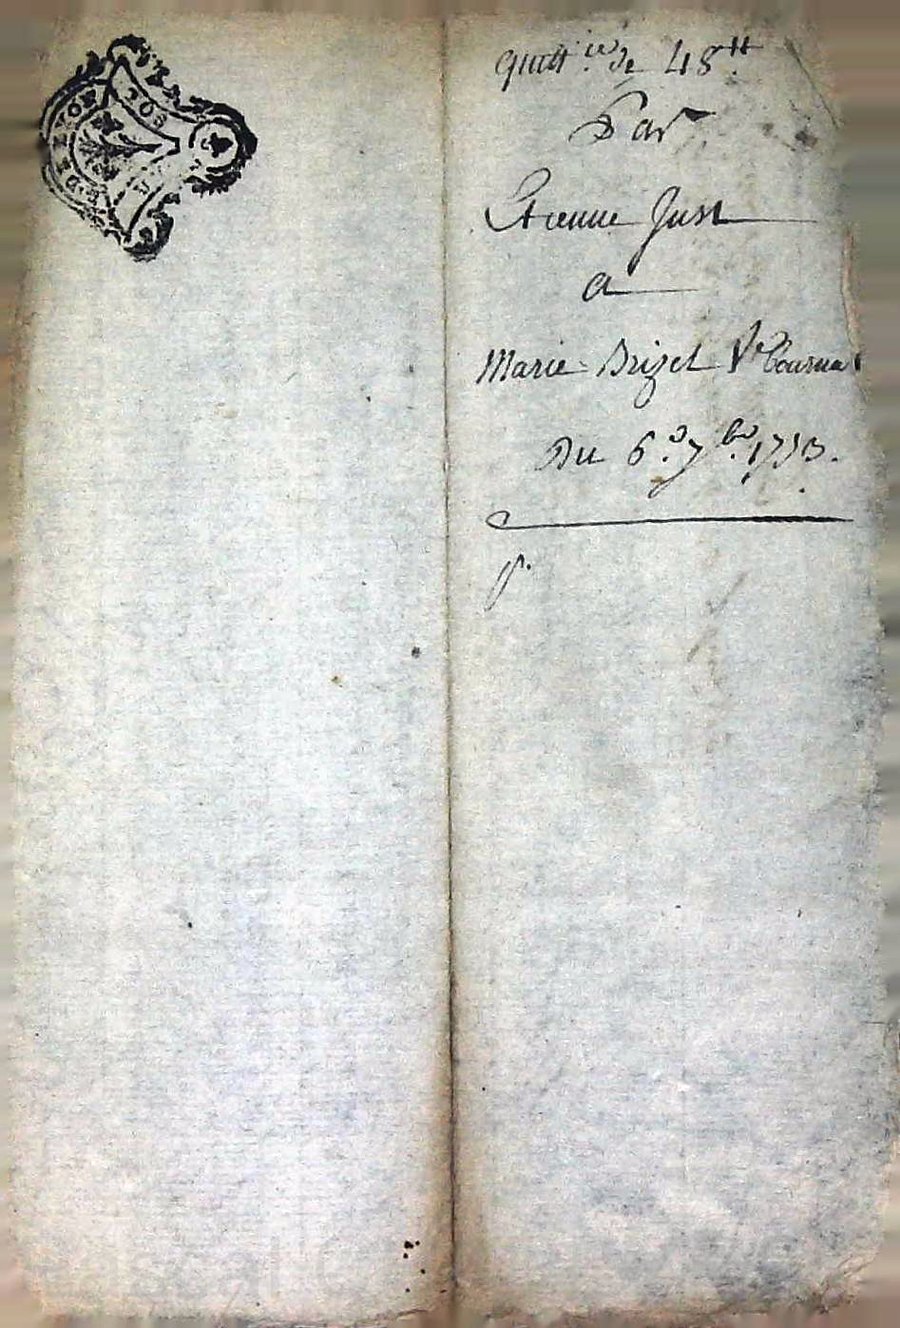 quitt.ce de 48tt
Par
Etienne Just
a
Marie Brizet Ve Cournat
Du 6.e 7bre 1753.
SOL